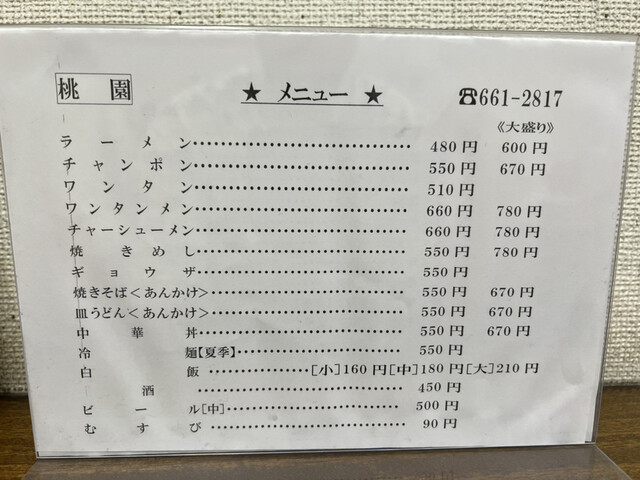 桃園 ★ メニュー ★ ☎661-2817
《大盛り》
ラーメン‥‥‥‥‥‥‥‥‥‥‥‥‥‥ 480円 600円
チャンポン‥‥‥‥‥‥‥‥‥‥‥‥‥‥ 550円 670円
ワンタン‥‥‥‥‥‥‥‥‥‥‥‥‥‥ 510円
ワンタンメン‥‥‥‥‥‥‥‥‥‥‥‥‥‥ 660円 780円
チャーシューメン‥‥‥‥‥‥‥‥‥‥‥‥‥‥ 660円 780円
焼きめし‥‥‥‥‥‥‥‥‥‥‥‥‥‥ 550円 780円
ギョウザ‥‥‥‥‥‥‥‥‥‥‥‥‥‥ 550円
焼きそば<あんかけ>‥‥‥‥‥‥‥‥‥‥‥‥‥ 550円 670円
皿うどん<あんかけ>‥‥‥‥‥‥‥‥‥‥‥‥‥ 550円 670円
中華丼‥‥‥‥‥‥‥‥‥‥‥‥‥‥ 550円 670円
冷麺【夏季】‥‥‥‥‥‥‥‥‥‥‥ 550円
白飯‥‥‥‥‥‥‥[小]160円[中]180円[大]210円
酒‥‥‥‥‥‥‥‥‥‥‥‥‥‥ 450円
ビール[中]‥‥‥‥‥‥‥‥‥‥‥‥ 500円
むすび‥‥‥‥‥‥‥‥‥‥‥‥‥‥ 90円